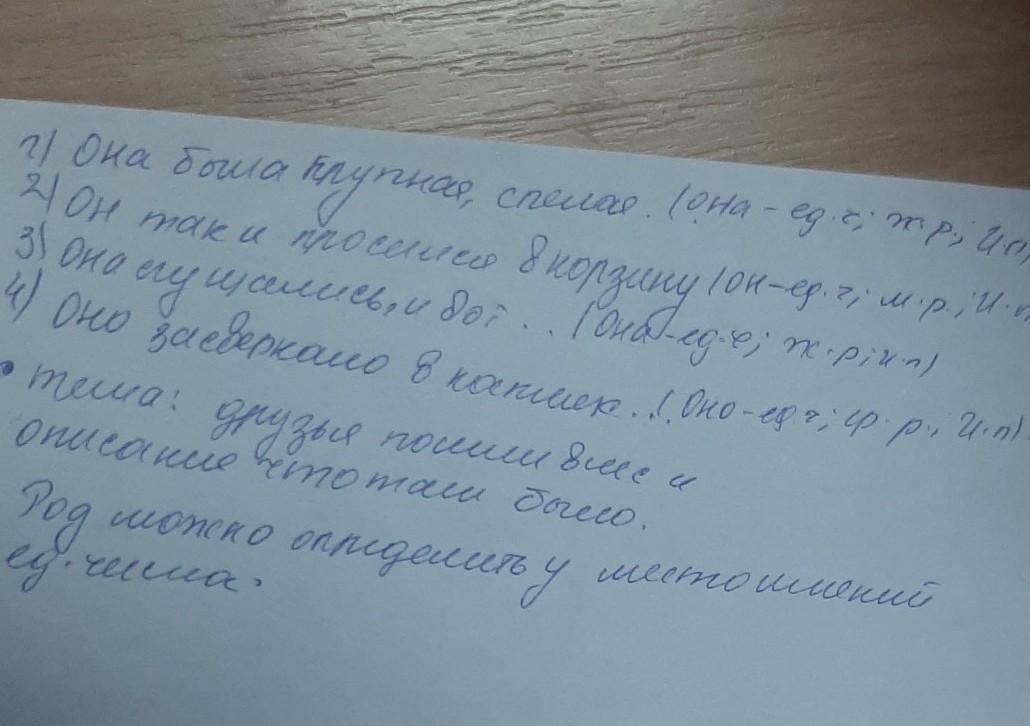 1) Она была крупная, спелая. (Она - ед.ч; ж.р.; И.п)
2) Он так и просился в корзину (он - ед.ч; м.р.; И.п
3) Она сгущались, и вот... (Она - ед.ч; ж.р; и.п)
4) Оно засверкало в каплях..! (Оно - ед.ч; ср.р., И.п)
• тема: друзья пошли в лес и
описание что там было.
Род можно определить у местоимений
ед. числа.